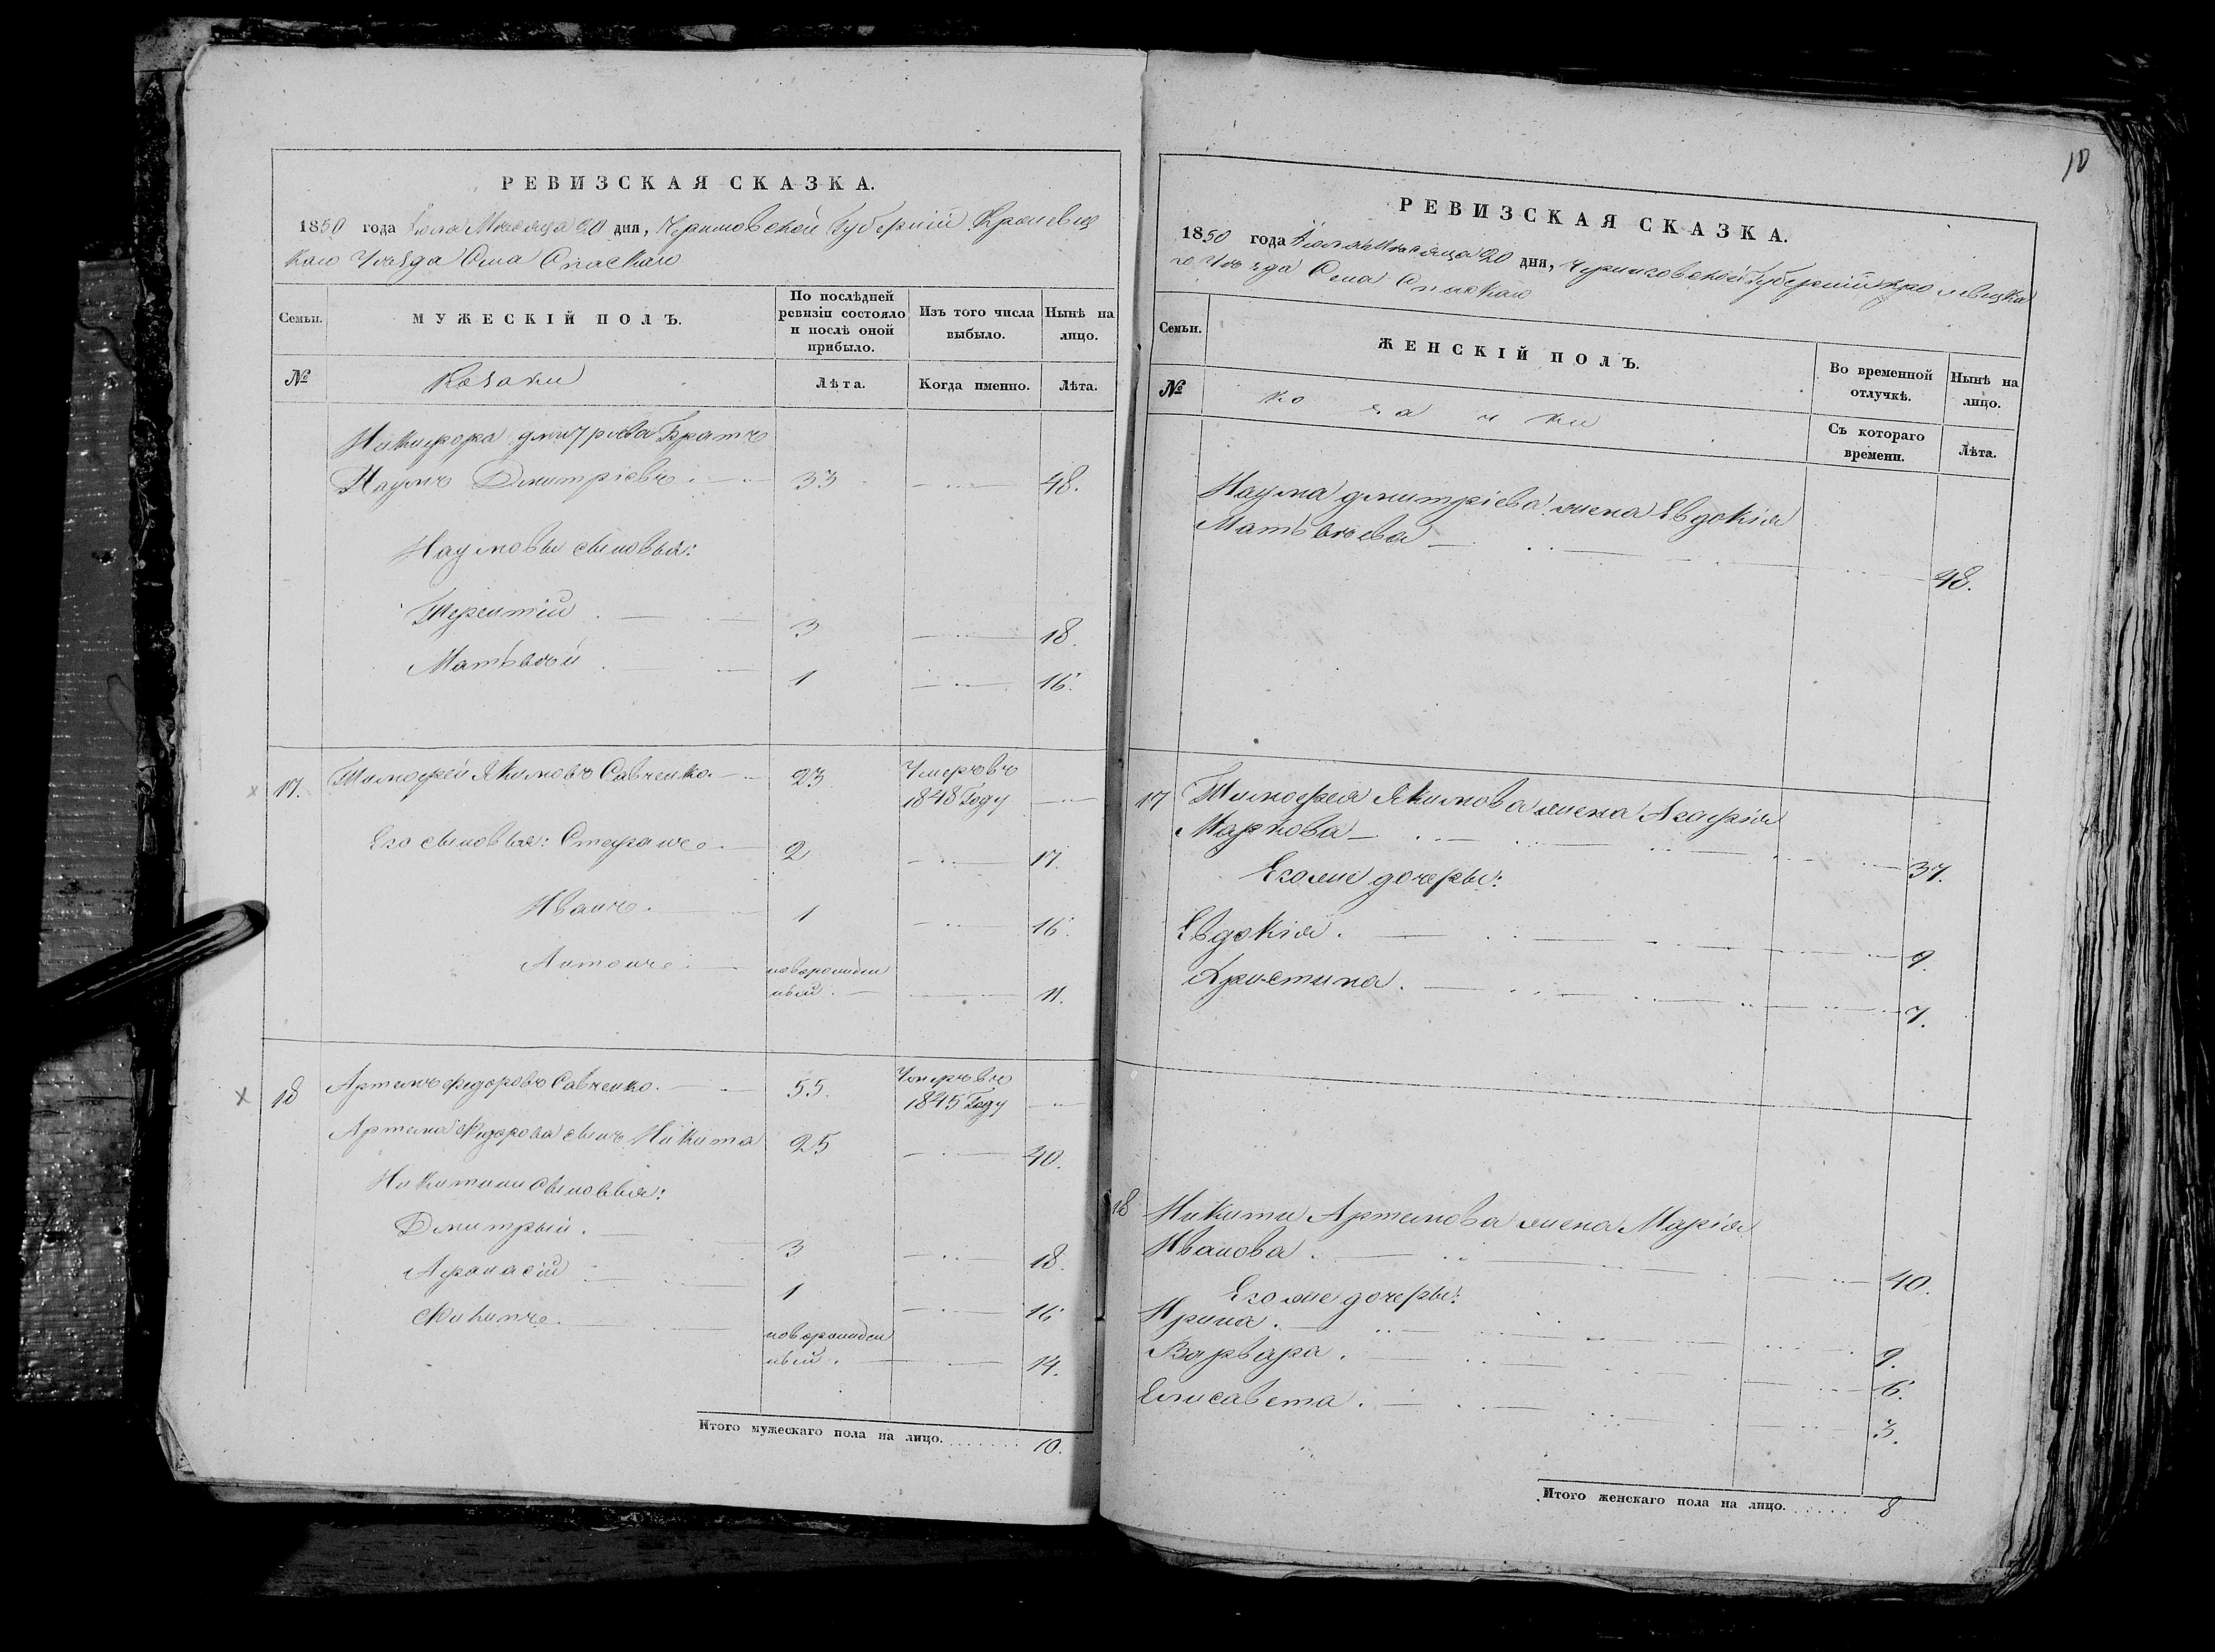 РЕВИЗСКАЯ СКАЗКА.
1850 года Іюля Мѣсяца 20 дня, Черниговской Губерніи Кролевец
каго Уѣзда Села Спаскаго
Семьи.
МУЖЕСКІЙ ПОЛЪ.
По послѣдней ревизіи состояло и послѣ оной прибыло.
Изъ того числа выбыло.
Нынѣ на лицо.
№
Козаки
Лѣта.
Когда именно.
Лѣта.
Никифора Дмитріева Братъ
Наумъ Дмитріевъ 33 48.
Наумовы сыновья:
Терентій 3 18.
Матьвѣй 1 16.
17. Тимофей Якимовъ Савченко 23 Умеръ въ
1848 Году
Его сыновья: Стефанъ 2 17.
Иванъ 1 16.
Антонъ новорожден
ный 11.
18 Артемъ Федоровъ Савченко 55. Умеръ въ
1845 Году
Артема Федорова сынъ Никита 25 40.
Никитины сыновья:
Дмитрый 3 18.
Афанасій 1 16
новорожден
ный 14.
Итого мужескаго пола на лицо. 10.
10
РЕВИЗСКАЯ СКАЗКА.
1850 года Іюля Мѣсяца 20 дня, Черниговской Губерніи Кролевецка
го Уѣзда Села Спаскаго
Семьи.
ЖЕНСКІЙ ПОЛЪ.
Во временной отлучкѣ.
Нынѣ на лицо.
№
козачки
Съ котораго времени.
Лѣта.
Наума Дмитріева жена Евдокія
Матьвѣева 48.
17 Тимофея Якимова жена Агафія
Маркова 37.
Егоже дочеры:
Евдокія 9.
Христина 7.
18 Никиты Артемова жена Марія
Иванова 40.
Егоже дочеры:
Ирина 9.
Варвара 6.
Елисавета 3.
Итого женскаго пола на лицо. 8